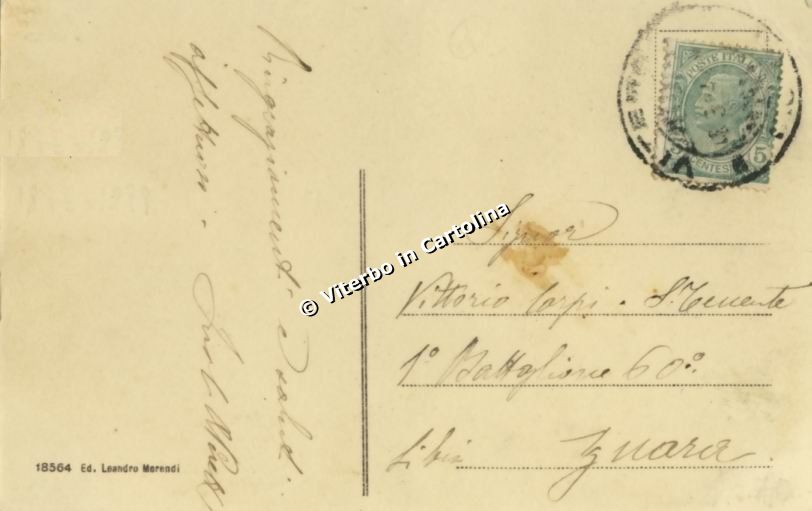 Ringraziamenti e saluti
affettuosi.
POSTE ITALIANE
CENTESIMI 5
VITERBO
Signor
Vittorio Carpi. S. Tenente
1º Battaglione 60º.
Libia Zuara
© Viterbo in Cartolina
18564 Ed. Leandro Merendi